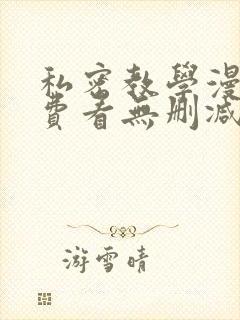 私密教學漫
費看無刪減
游雪晴